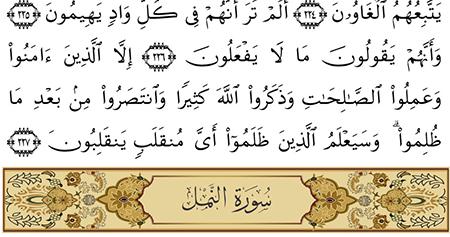 يَتَّبِعُهُمُ ٱلْغَاوُۥنَ ﴿٢٢٤﴾ أَلَمْ تَرَ أَنَّهُمْ فِى كُلِّ وَادٍ يَهِيمُونَ ﴿٢٢٥﴾
وَأَنَّهُمْ يَقُولُونَ مَا لَا يَفْعَلُونَ ﴿٢٢٦﴾ إِلَّا ٱلَّذِينَ ءَامَنُوا۟
وَعَمِلُوا۟ ٱلصَّـٰلِحَـٰتِ وَذَكَرُوا۟ ٱللَّهَ كَثِيرًا وَٱنتَصَرُوا۟ مِنۢ بَعْدِ مَا
ظُلِمُوا۟ ۗ وَسَيَعْلَمُ ٱلَّذِينَ ظَلَمُوٓا۟ أَىَّ مُنقَلَبٍ يَنقَلِبُونَ ﴿٢٢٧﴾
سُورَةُ النَّمْلِ